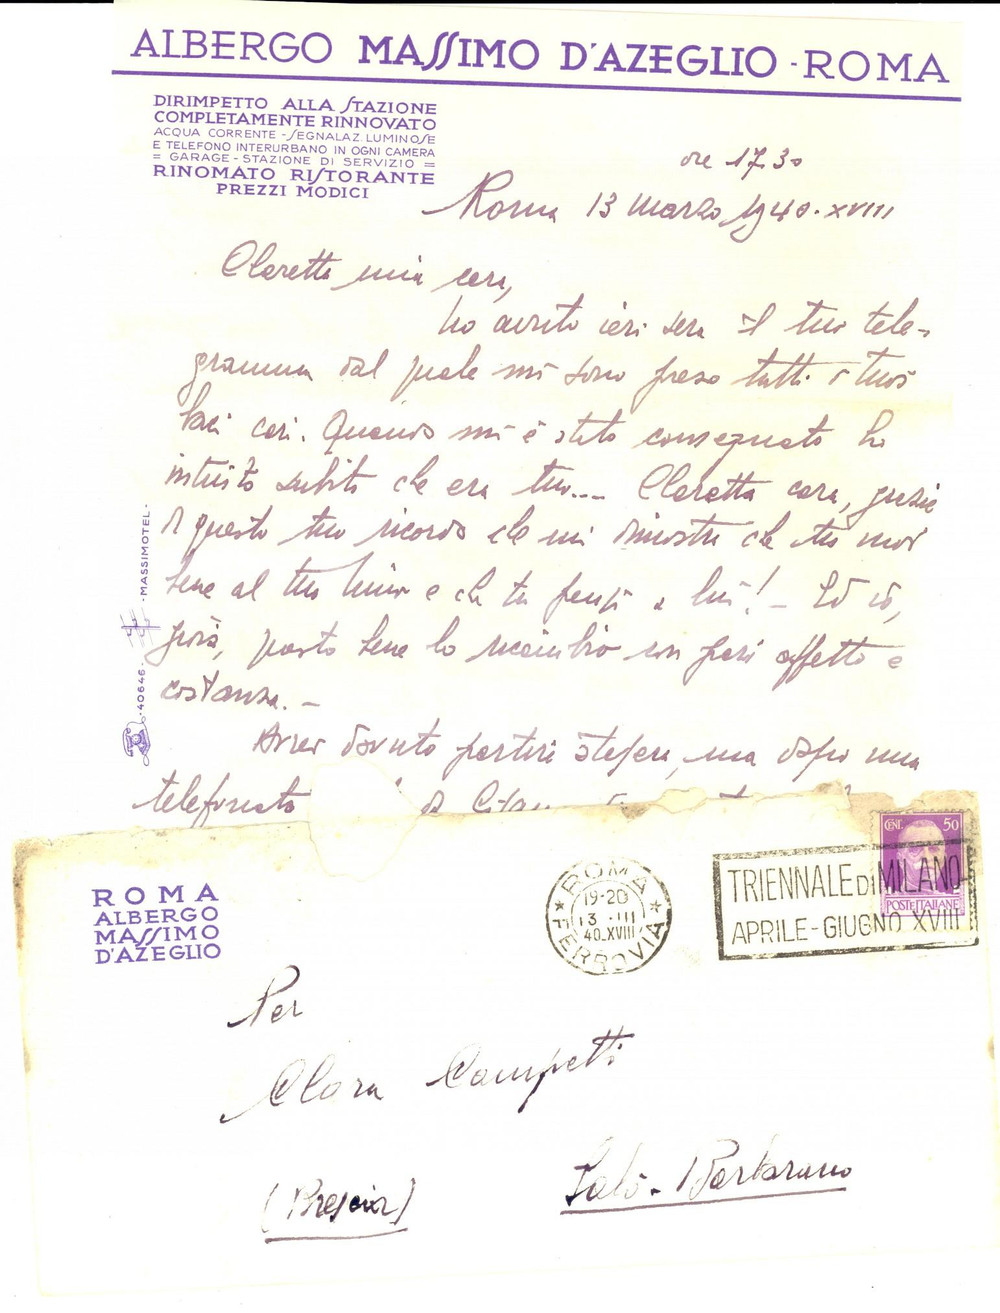 ALBERGO MASSIMO D'AZEGLIO - ROMA
DIRIMPETTO ALLA STAZIONE
COMPLETAMENTE RINNOVATO
ACQUA CORRENTE - SEGNALAZ. LUMINOSE
E TELEFONO INTERURBANO IN OGNI CAMERA
= GARAGE - STAZIONE DI SERVIZIO =
RINOMATO RISTORANTE
PREZZI MODICI
ore 17.30
Roma 13 Marzo 1940.XVIII
Claretta mia cara,
ho avuto ieri sera il tuo tele-
gramma dal quale mi sono preso tutti i tuoi
baci cari. Quando mi è stato consegnato ho
intuito subito che era tuo.... Claretta cara, grazie
di questo tuo ricordo che mi dimostra che tu vuoi
bene al tuo Nino e che tu pensi a lui! - Ed io,
gioia, questo bene lo ricambio con pari affetto e
costanza. -
Avrei dovuto partire stasera, ma dopo una
telefonata da
40646 - MASSIMOTEL -
ROMA
ALBERGO
MASSIMO
D'AZEGLIO
ROMA
19-20
13 III
40.XVIII
FERROVIA
TRIENNALE DI MILANO
APRILE - GIUGNO XVIII
CENT. 50
POSTE ITALIANE
Per
Clara Campetti
Salò - Barbarano
(Brescia)